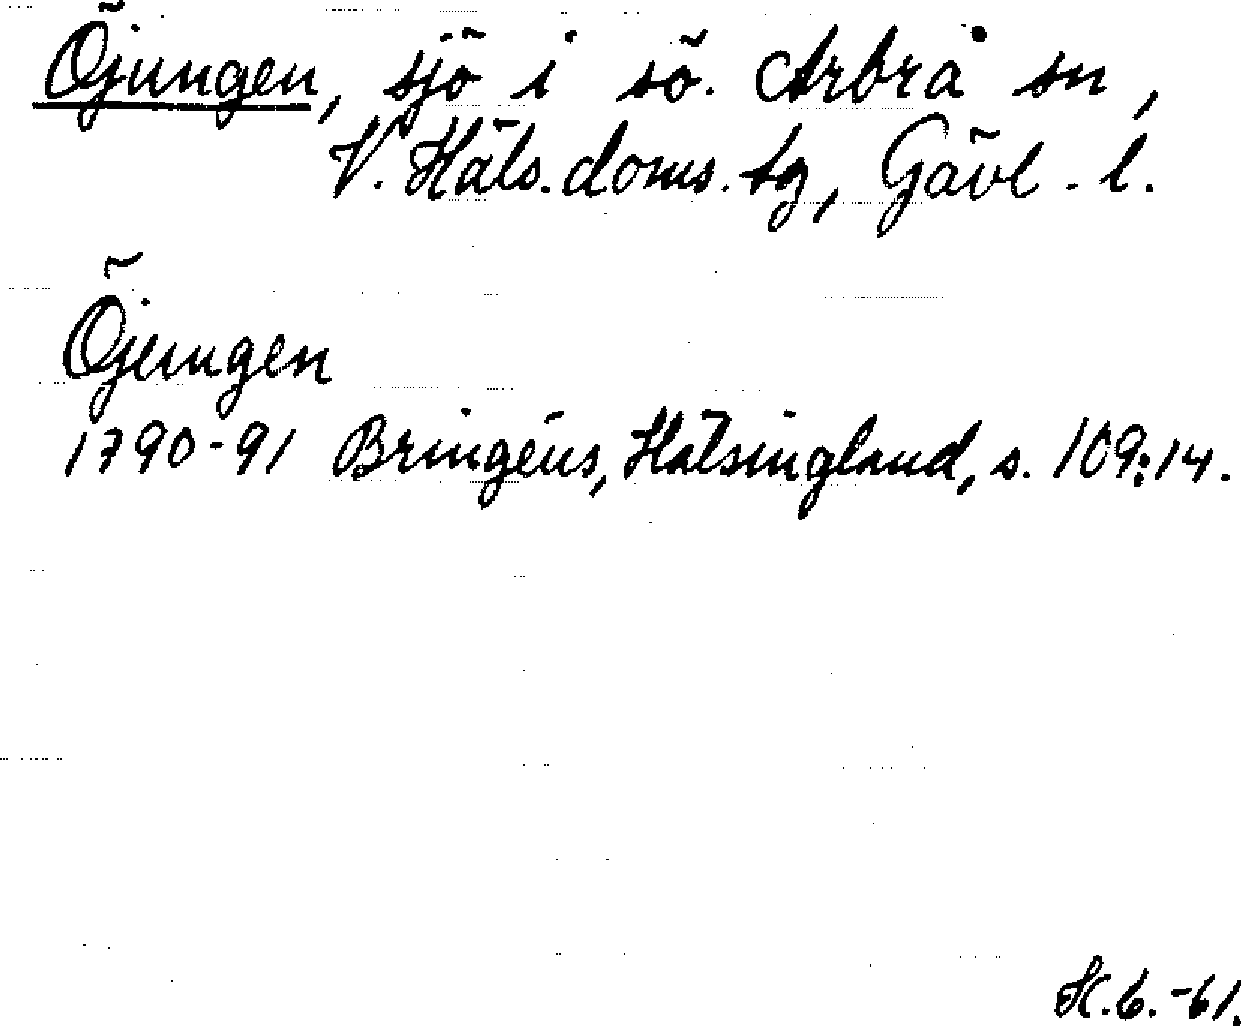 Öjungen, sjö i sö. Arbrå sn,
V. Häls. doms. tg, Gävl. l.
Öjemgen
1790-91 Bringéus, Hälsingland, s. 109:14.
H.G.-61.